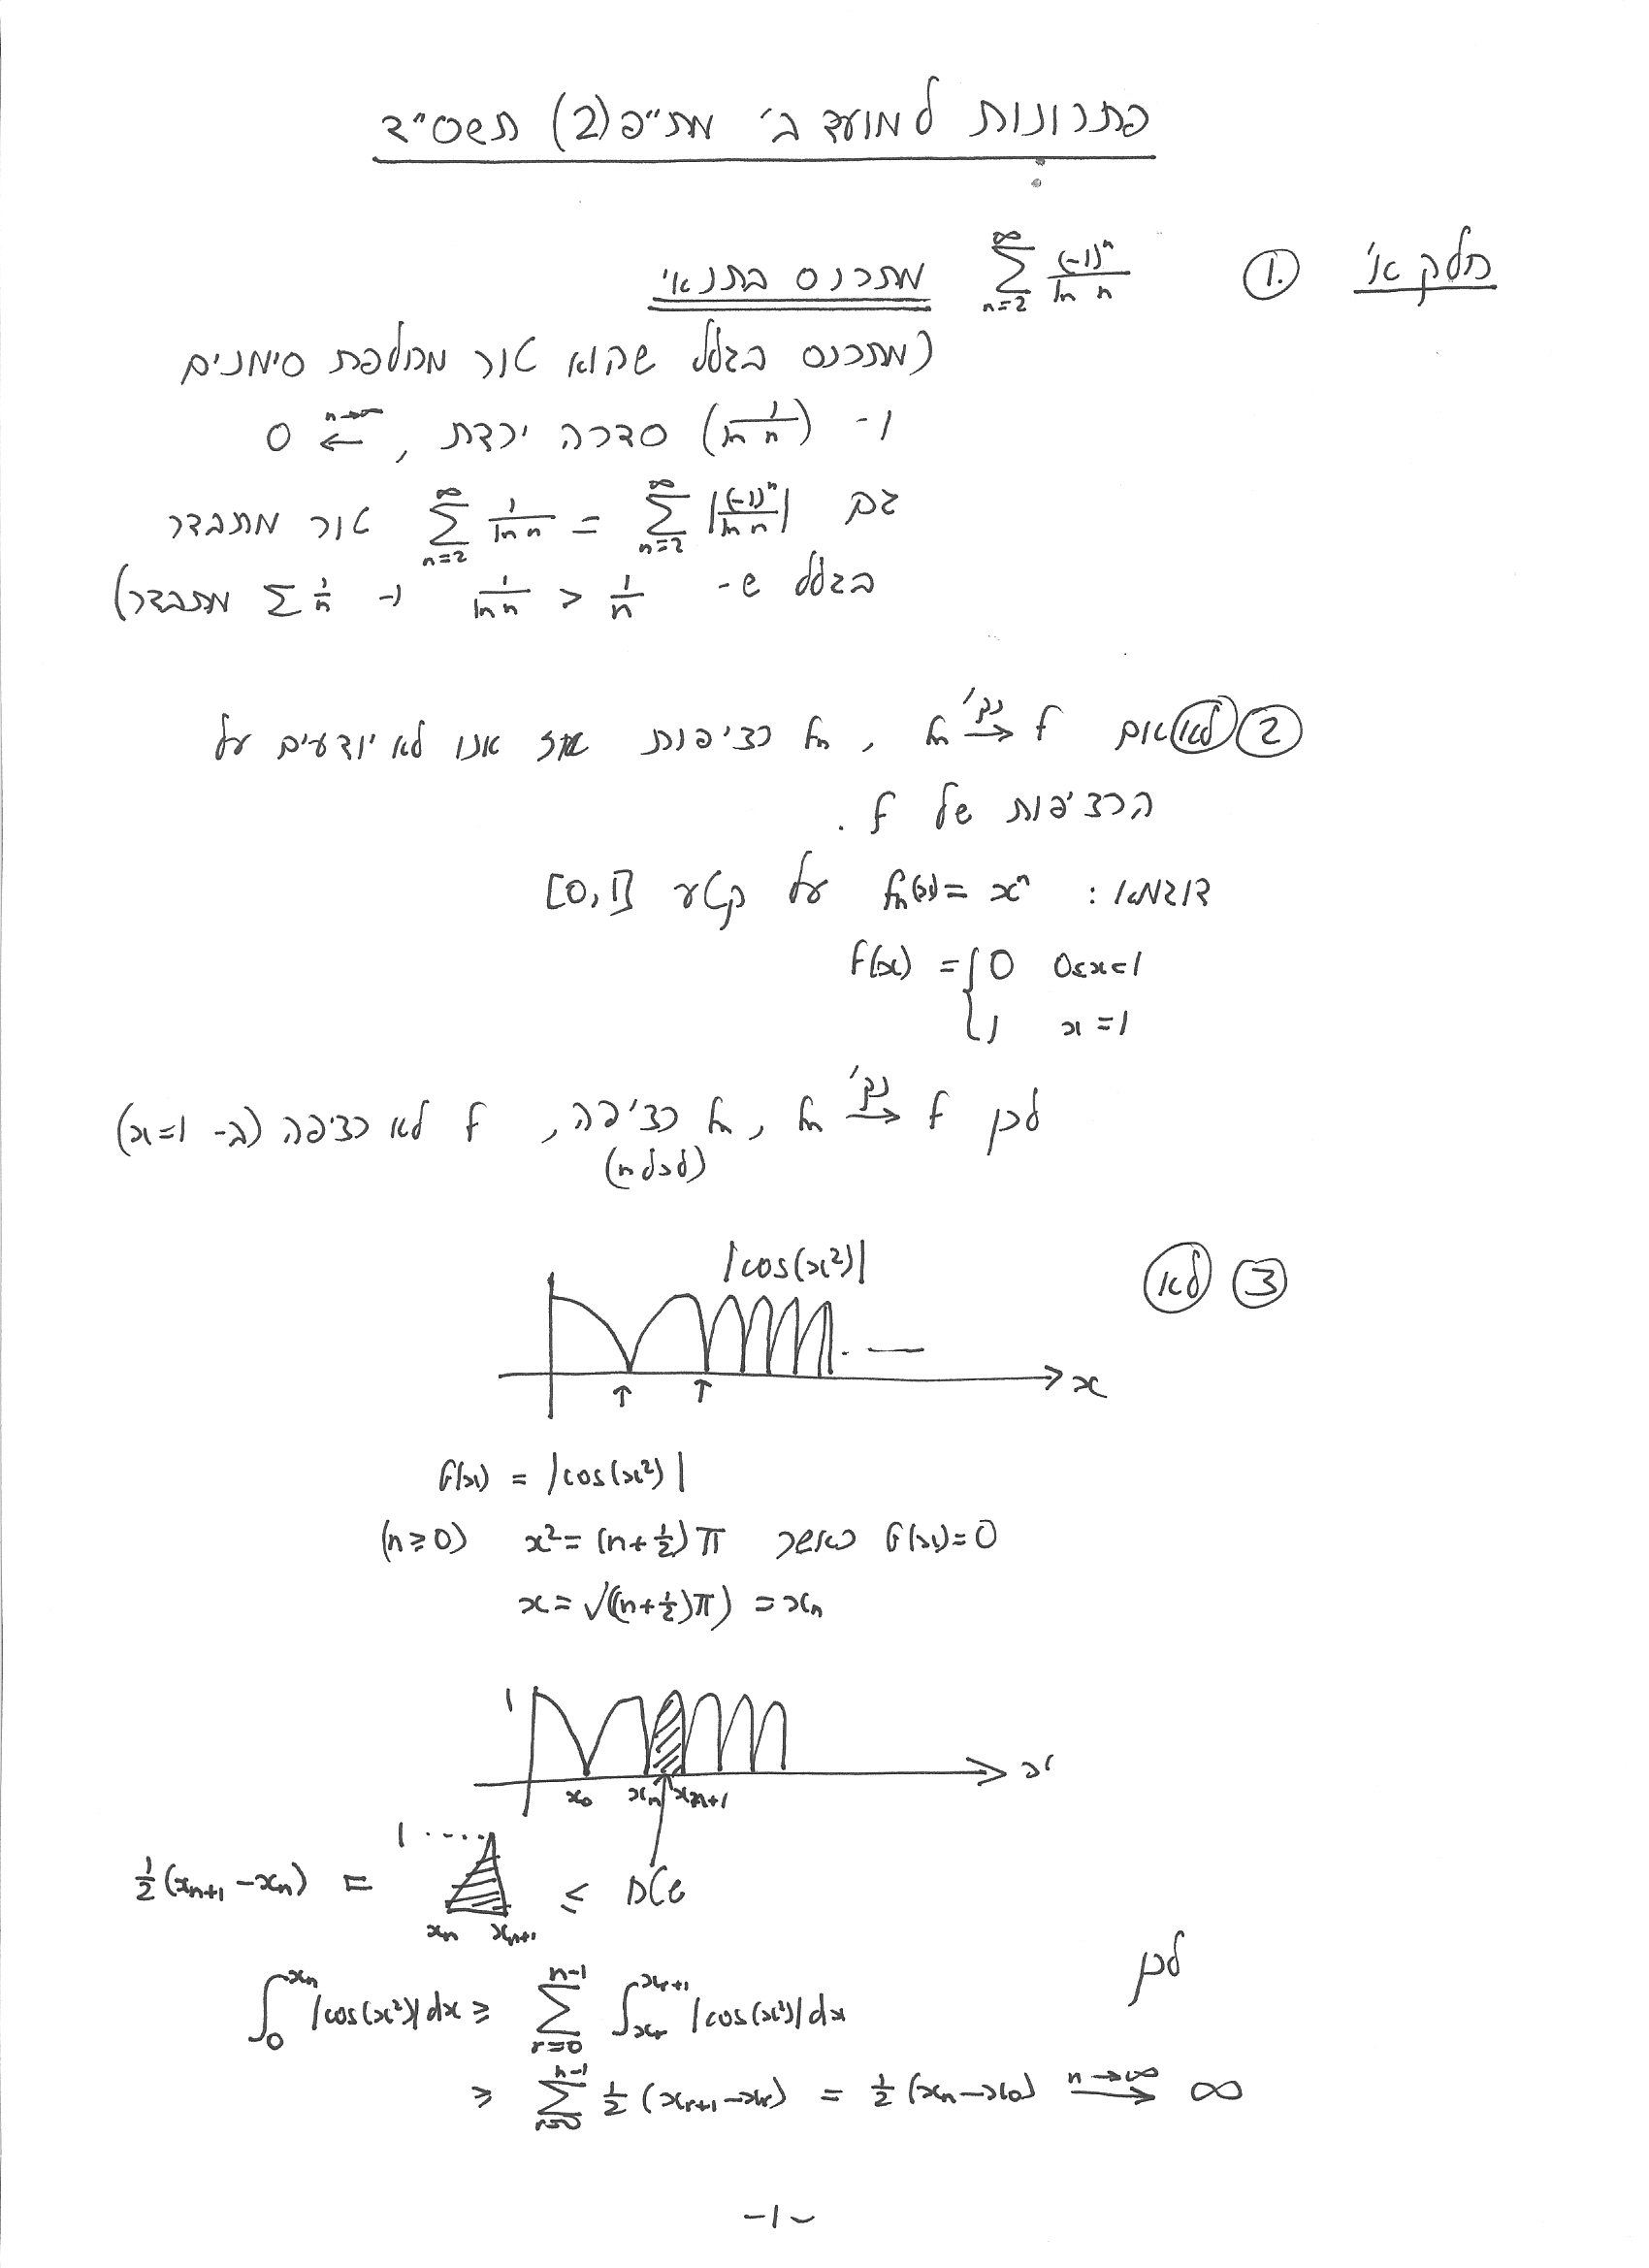 פתרונות למועד ב' מת"פ (2) תשס"ד
חלק א' 1. \sum_{n=2}^{\infty} \frac{(-1)^n}{\ln n} מתכנס בתנאי
(מתכנס בגלל שהוא טור מחלפת סימנים
ו- (\frac{1}{\ln n}) סדרה יורדת, \xleftarrow{n→∞} 0
גם \sum_{n=2}^{\infty} |\frac{(-1)^n}{\ln n}| = \sum_{n=2}^{\infty} \frac{1}{\ln n} טור מתבדר
בגלל ש- \frac{1}{\ln n} > \frac{1}{n} ו- \sum \frac{1}{n} מתבדר)
2 לא אם f_n \xrightarrow{נק'} f , f_n רציפות אז אנו לא יודעים על
הרציפות של f .
דוגמא : f_n(x) = x^n על קטע [0,1]
f(x) = { 0 0≤x<1
1 x=1
לכן f_n \xrightarrow{נק'} f , f_n רציפה, f לא רציפה (ב- x=1)
(לכל n)
3 לא
|cos(x²)|
x
f(x) = |cos(x²)|
f(x)=0 כאשר x² = (n+½)π (n≥0)
x = √((n+½)π) = x_n
1
x
x_0 x_n x_{n+1}
½(x_{n+1} - x_n) = 1 ≤ שטח
x_n x_{n+1}
לכן
\int_0^{x_n} |cos(x²)|dx ≥ \sum_{r=0}^{n-1} \int_{x_r}^{x_{r+1}} |cos(x²)|dx
≥ \sum_{r=0}^{n-1} ½ (x_{r+1} - x_r) = ½ (x_n - x_0) \xrightarrow{n→∞} ∞
-1-